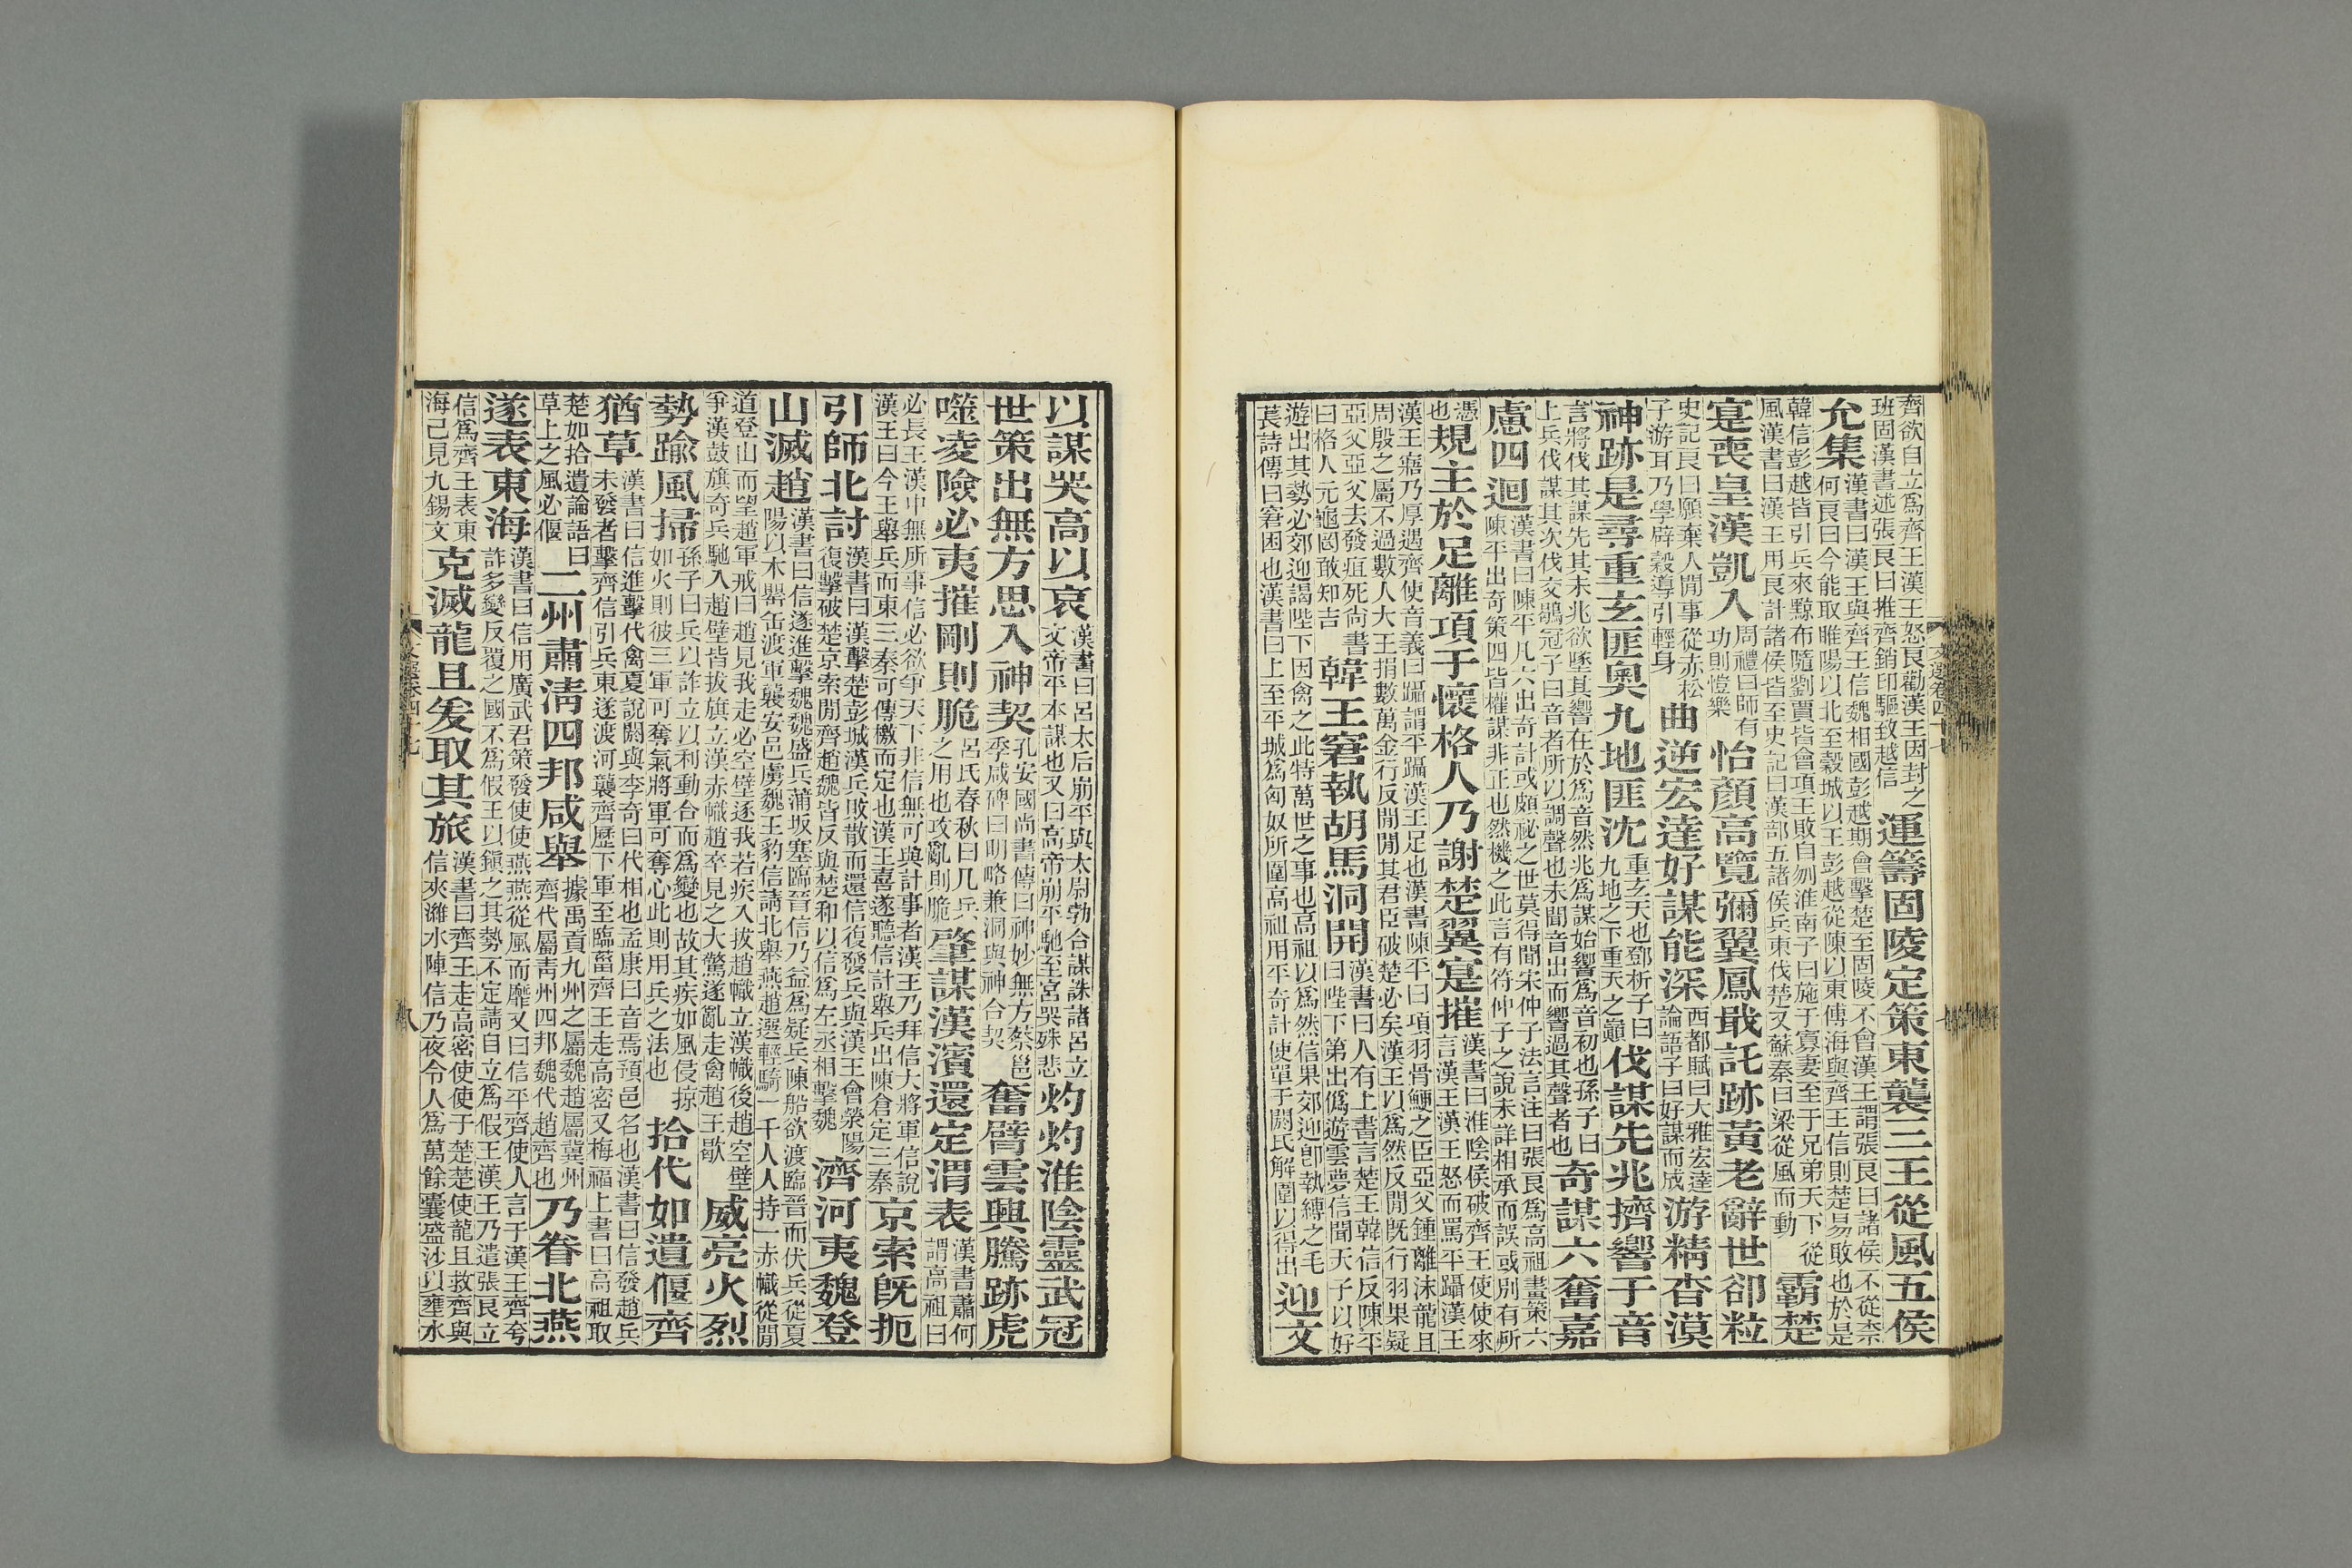 齊欲自立爲齊王漢王怒良勸漢王因封之
班固漢書述張良曰推齊銷印驅致越信
運籌固陵定策東襲三王從風五侯
允集
漢書曰漢王與齊王信魏相國彭越期會擊楚至固陵不會漢王謂張良曰諸侯不從柰
何良曰今能取睢陽以北至穀城以王彭越從陳以東傅海與齊王信則楚易敗也於是
韓信彭越皆引兵來黥布隨劉賈皆會項王敗自刎淮南子曰施于寡妻至于兄弟天下從
風漢書曰漢王用良計諸侯皆至史記曰漢部五諸侯兵東伐楚又蘇秦曰梁從風而動
霸楚
寔喪皇漢凱入
周禮曰師有
功則愷樂
怡顏高覽彌翼鳳戢託跡黃老辭世卻粒
史記良曰願棄人閒事從赤松
子游耳乃學辟穀導引輕身
曲逆宏達好謀能深
西都賦曰大雅宏達
論語子曰好謀而成
游精杳漠
神跡是尋重玄匪奧九地匪沈
重玄天也鄧析子曰
九地之下重天之巔
伐謀先兆擠響于音
言將伐其謀先其未兆欲墜其響在於爲音然兆爲謀始響爲音初也孫子曰
上兵伐謀其次伐交鶡冠子曰音者所以調聲也未聞音出而響過其聲者也
奇謀六奮嘉
慮四迴
漢書曰陳平凡六出奇計或頗祕之世莫得聞宋仲子法言注曰張良爲高祖畫策六
陳平出奇策四皆權謀非正也然機之此言有符仲子之說未詳相承而誤或別有所
憑
也
規主於足離項于懷格人乃謝楚翼寔摧
漢書曰淮陰侯破齊王使使來
言漢王漢王怒而罵平躡漢王
漢王寤乃厚遇齊使音義曰躡謂平躡漢王足也漢書陳平曰項羽骨鯁之臣亞父鍾離沬龍且
周殷之屬不過數人大王捐數萬金行反閒閒其君臣破楚必矣漢王以爲然反閒既行羽果疑
亞父亞父去發疽死尚書
曰格人元龜罔敢知吉
韓王窘執胡馬洞開
漢書曰人有上書言楚王韓信反陳平
曰陛下第出僞遊雲夢信聞天子以好
遊出其勢必郊迎謁陛下因禽之此特萬世之事也高祖以爲然信果郊迎卽執縛之毛
萇詩傳曰窘困也漢書曰上至平城爲匈奴所圍高祖用平奇計使單于閼氏解圍以得出
迎文
以謀哭高以哀
漢書曰呂太后崩平與太尉勃合謀誅諸呂立
文帝平本謀也又曰高帝崩平馳至宮哭殊悲
灼灼淮陰靈武冠
世策出無方思入神契
孔安國尚書傳曰神妙無方蔡邕
季咸碑曰明略兼洞與神合契
奮臂雲興騰跡虎
噬凌險必夷摧剛則脆
呂氏春秋曰凡兵
之用也攻亂則脆
肇謀漢濱還定渭表
漢書蕭何
謂高祖曰
必長王漢中無所事信必欲爭天下非信無可與計事者漢王乃拜信大將軍信說
漢王曰今王舉兵而東三秦可傳檄而定也漢王喜遂聽信計舉兵出陳倉定三秦
京索既扼
引師北討
漢書曰漢擊楚彭城漢兵敗散而還信復發兵與漢王會滎陽
復擊破楚京索閒齊趙魏皆反與楚和以信爲左丞相擊魏
濟河夷魏登
山滅趙
漢書曰信遂進擊魏魏盛兵蒲坂塞臨晉信乃益爲疑兵陳船欲渡臨晉而伏兵從夏
陽以木罌缶渡軍襲安邑虜魏王豹信請北舉燕趙選輕騎二千人人持一赤幟從閒
道登山而望趙軍戒曰趙見我走必空壁逐我若疾入拔趙幟立漢幟後趙空壁
爭漢鼓旗奇兵馳入趙壁皆拔旗立漢赤幟趙卒見之大驚遂亂走禽趙王歇
威亮火烈
勢踰風掃
孫子曰兵以詐立以利動合而爲變也故其疾如風侵掠
如火則彼三軍可奪氣將軍可奪心此則用兵之法也
拾代如遺偃齊
猶草
漢書曰信進擊代禽夏說閼與李奇曰代相也孟康曰音焉預邑名也漢書曰信發趙兵
未發者擊齊信引兵東遂渡河襲齊歷下軍至臨菑齊王走高密又梅福上書曰高祖取
楚如拾遺論語曰
草上之風必偃
二州肅淸四邦咸舉
據禹貢九州之屬魏趙屬冀州
齊代屬靑州四邦魏代趙齊也
乃眷北燕
遂表東海
漢書曰信用廣武君策發使使燕燕從風而靡又曰信平齊使人言于漢王齊夸
詐多變反覆之國不爲假王以鎭之其勢不定請自立爲假王漢王乃遣張良立
信爲齊王表東
海已見九錫文
克滅龍且爰取其旅
漢書曰齊王走高密使使于楚楚使龍且救齊與
信夾濰水陣信乃夜令人爲萬餘囊盛沙以壅水
文選卷四十七
八